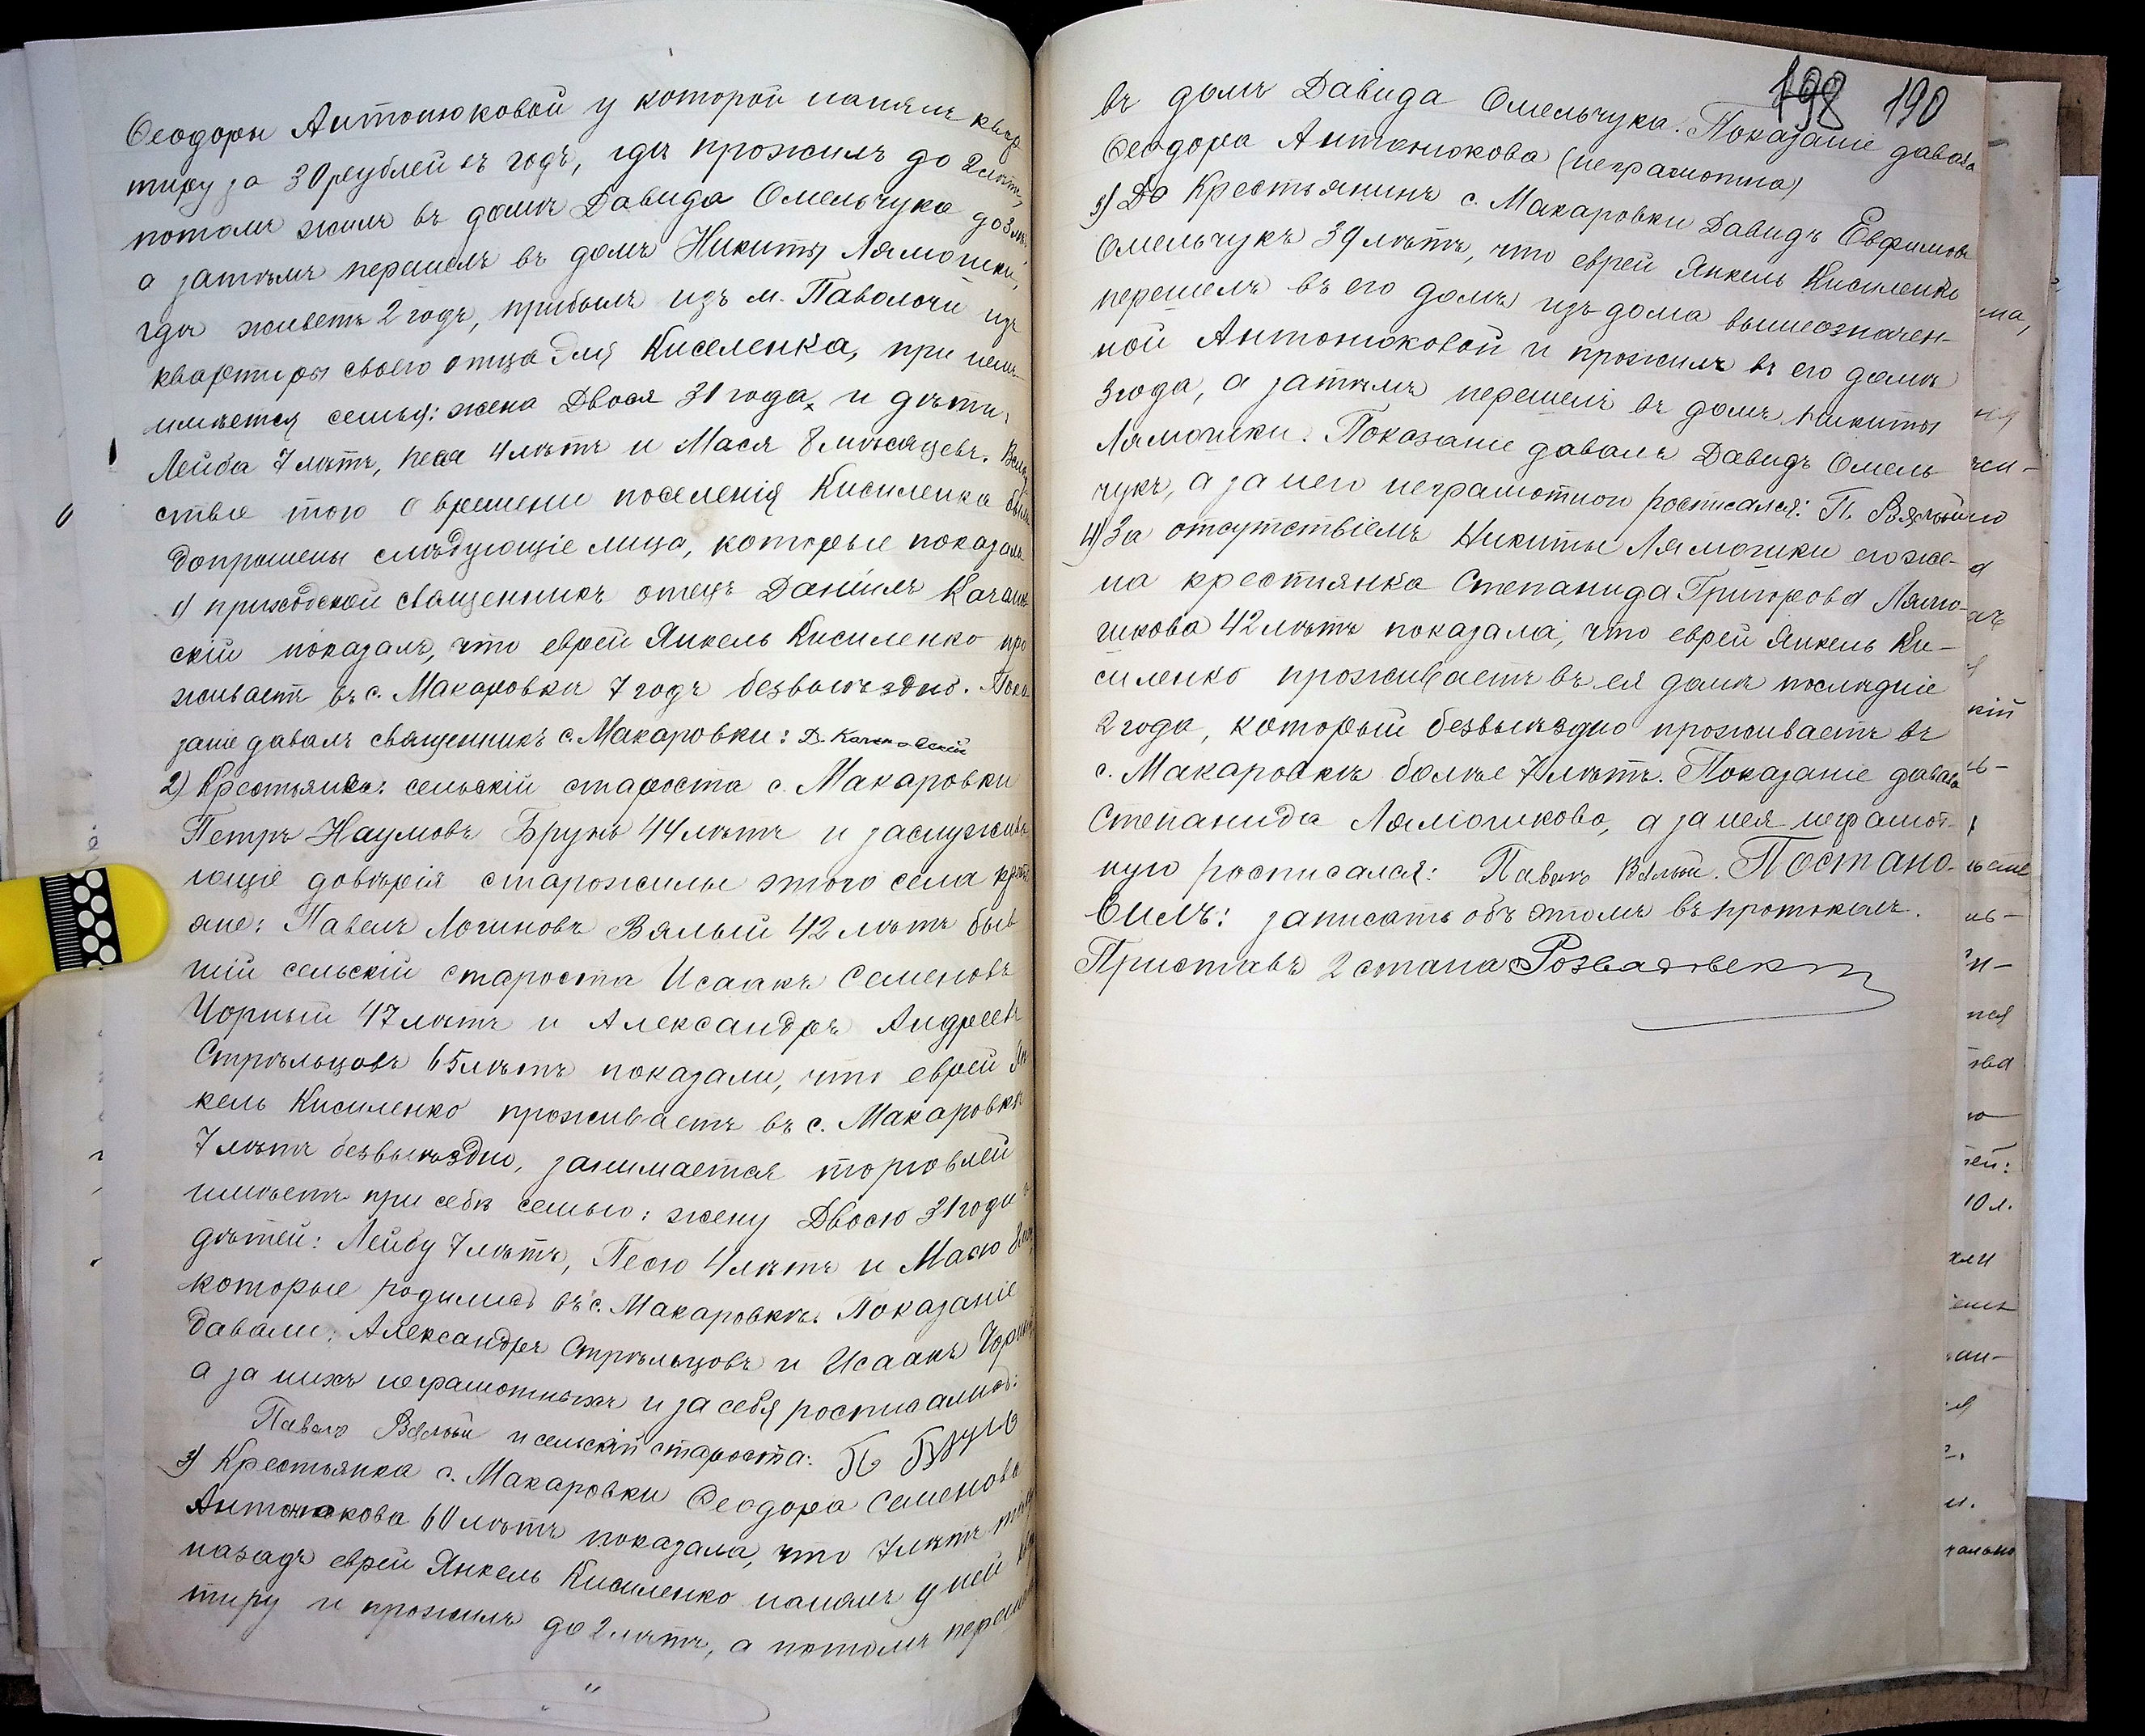 Ѳеодоры Антонюковой у которой нанялъ квар
тиру за 30 рублей въ годъ, гдѣ прожилъ до 2 лѣтъ,
потомъ жилъ въ домѣ Давида Омельчука до 3 лѣ
а затѣмъ перешелъ въ домъ Никиты Лямошки,
гдѣ живетъ 2 годъ, прибылъ изъ м. Паволочи изъ
квартиры своего отца Эля Киселенка, при немъ
имѣется семья: жена Двося 31 года и дѣти:
Лейба 7 лѣтъ, Песя 4 лѣтъ и Мася 8 мѣсяцевъ. Вслѣд
ствіе того о времени поселенія Кисиленка были
допрошены слѣдующіе лица, которые показали
1) приходской священникъ отецъ Даніилъ Качанов
скій показалъ, что еврей Янкель Кисиленко про
живаетъ въ с. Макаровкѣ 7 годъ безвыѣздно. Пока
заніе давалъ священникъ с. Макаровки: Д. Качановскій
2) Крестьяне: сельскій староста с. Макаровки
Петръ Наумовъ Брунь 44 лѣтъ и заслужива
ющіе довѣрія старожилы этого села крест
яне: Павелъ Логиновъ Вялый 42 лѣтъ быв
шій сельскій староста Исаакъ Семеновъ
Чорный 47 лѣтъ и Александръ Андреевъ
Стрѣльцовъ 65 лѣтъ показали, что еврей Ян
кель Кисиленко проживаетъ въ с. Макаровкѣ
7 лѣтъ безвыѣздно, занимается торговлей
имѣетъ при себѣ семью: жену Двосю 31 года и
дѣтей: Лейбу 7 лѣтъ, Песю 4 лѣтъ и Масю 8 мѣ
которые родились въ с. Макаровкѣ. Показаніе
давали: Александръ Стрѣльцовъ и Исаакъ Чорный
а за нихъ неграмотныхъ и за себя росписались:
Павелъ Вялый и сельскій староста: П Брунь
3) Крестьянка с. Макаровки Ѳеодора Семенова
Антонюкова 60 лѣтъ показала, что 7 лѣтъ тому
назадъ еврей Янкель Кисиленко нанялъ у ней квар
тиру и прожилъ до 2 лѣтъ, а потомъ перешелъ
198 190
въ домъ Давида Омельчука. Показаніе давала
Ѳеодора Антонюкова (неграмотна)
3) До Крестьянинъ с. Макаровки Давидъ Евфимовъ
Омельчукъ 39 лѣтъ, что еврей Янкель Кисиленко
перешелъ въ его домъ изъ дома вышеозначен-
ной Антонюковой и прожилъ въ его домѣ
3 года, а затѣмъ перешелъ въ домъ Никиты
Лямошки. Показаніе давалъ Давидъ Омель-
чукъ, а за него неграмотного росписался: П. Вялый
4) За отсутствіемъ Никиты Лямошки его же-
на крестянка Степанида Григорова Лямо-
шкова 42 лѣтъ показала, что еврей Янкель Ки-
силенко проживаетъ въ ея домѣ послѣдніе
2 года, который безвыѣздно проживаетъ въ
с. Макаровкѣ болѣе 7 лѣтъ. Показаніе давала
Степанида Лямошкова, а за нея неграмот-
ную росписался: Павелъ Вялый. Постано-
вилъ: записать объ этомъ въ протоколъ.
Приставъ 2 стана